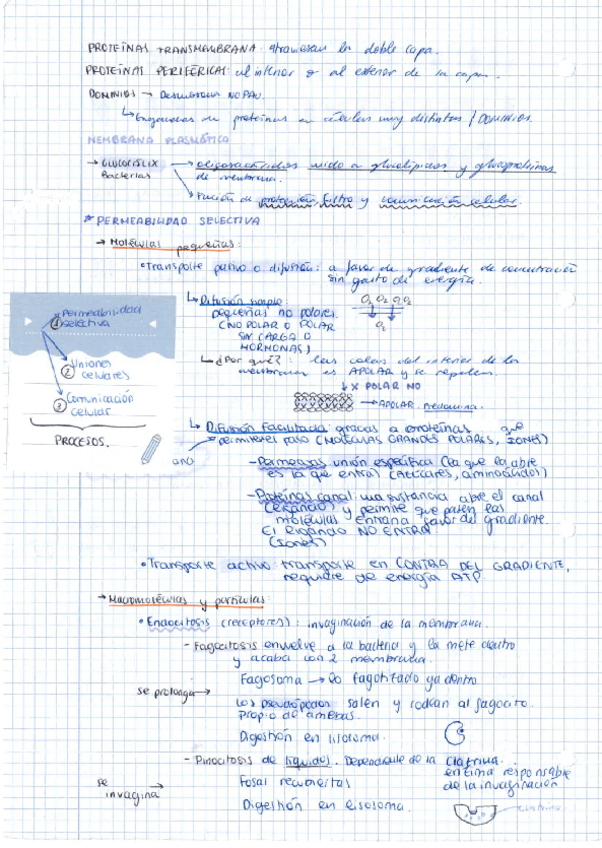 PROTEÍNAS TRANSMEMBRANA: atraviesan la doble capa.
PROTEÍNAS PERIFÉRICAS: al interior o al exterior de la capa.
DOMINIOS →
↳ proteínas en células muy distintas / DOMINIOS.
MEMBRANA PLASMÁTICA
→ GLUCOCÁLIX → oligosacáridos unido a glucolípidos y glucoproteínas
Bacterias de membrana.
→ Función de protección, filtro y comunicación celular.
* PERMEABILIDAD SELECTIVA
→ Moléculas pequeñas:
• Transporte pasivo o difusión: a favor de gradiente de concentración
sin gasto de energía.
↳ Difusión simple: O₂ O₂ O₂ O₂
pequeñas no polares. O₂
(NO POLAR O POLAR
SIN CARGA O
HORMONAS)
↳ ¿Por qué?: las colas del interior de las
membrana es APOLAR y se repelen.
↓ X POLAR NO
→ APOLAR.
* Permeabilidad
① selectiva
② Uniones
celulares
③ Comunicación
celular
PROCESOS.
↳ Difusión Facilitada: gracias a proteínas que
permiten el paso (MOLÉCULAS GRANDES POLARES, IONES)
- Permeasas unión específica (la que la abre
es la que entra) (Azúcares, aminoácidos)
- Proteínas canal: una sustancia abre el canal
(ligando) y permite que pasen las
moléculas entran a favor del gradiente.
El ligando NO ENTRA
(Iones)
• Transporte activo: transporte en CONTRA DEL GRADIENTE,
requiere de energía ATP.
→ Macromoléculas y partículas:
• Endocitosis (receptores): invaginación de la membrana.
- Fagocitosis envuelve a la bacteria y la mete dentro
y acaba con 2 membrana.
Fagosoma → lo fagocitado ya dentro
se prolonga →
Los pseudópodos salen y rodean al fagocito.
Propio de amebas.
Digestión en lisosoma.
- Pinocitosis de líquidos. Dependiente de la clatrina.
enzima responsable
de la invaginación
se invagina →
Fosas recubiertas
Digestión en lisosoma.
clatrina